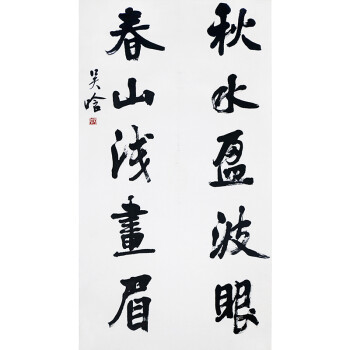 秋水盈波眼
春山浅畫眉
吴晗